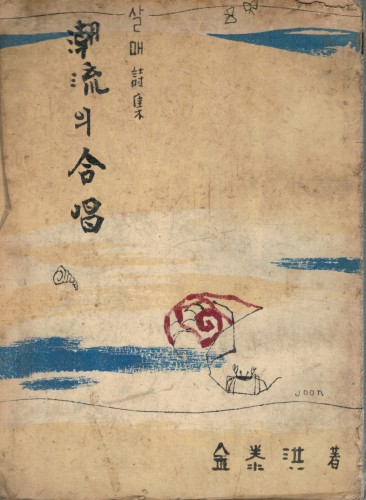 살매詩集
潮流의合唱
JOON
金泰洪 著